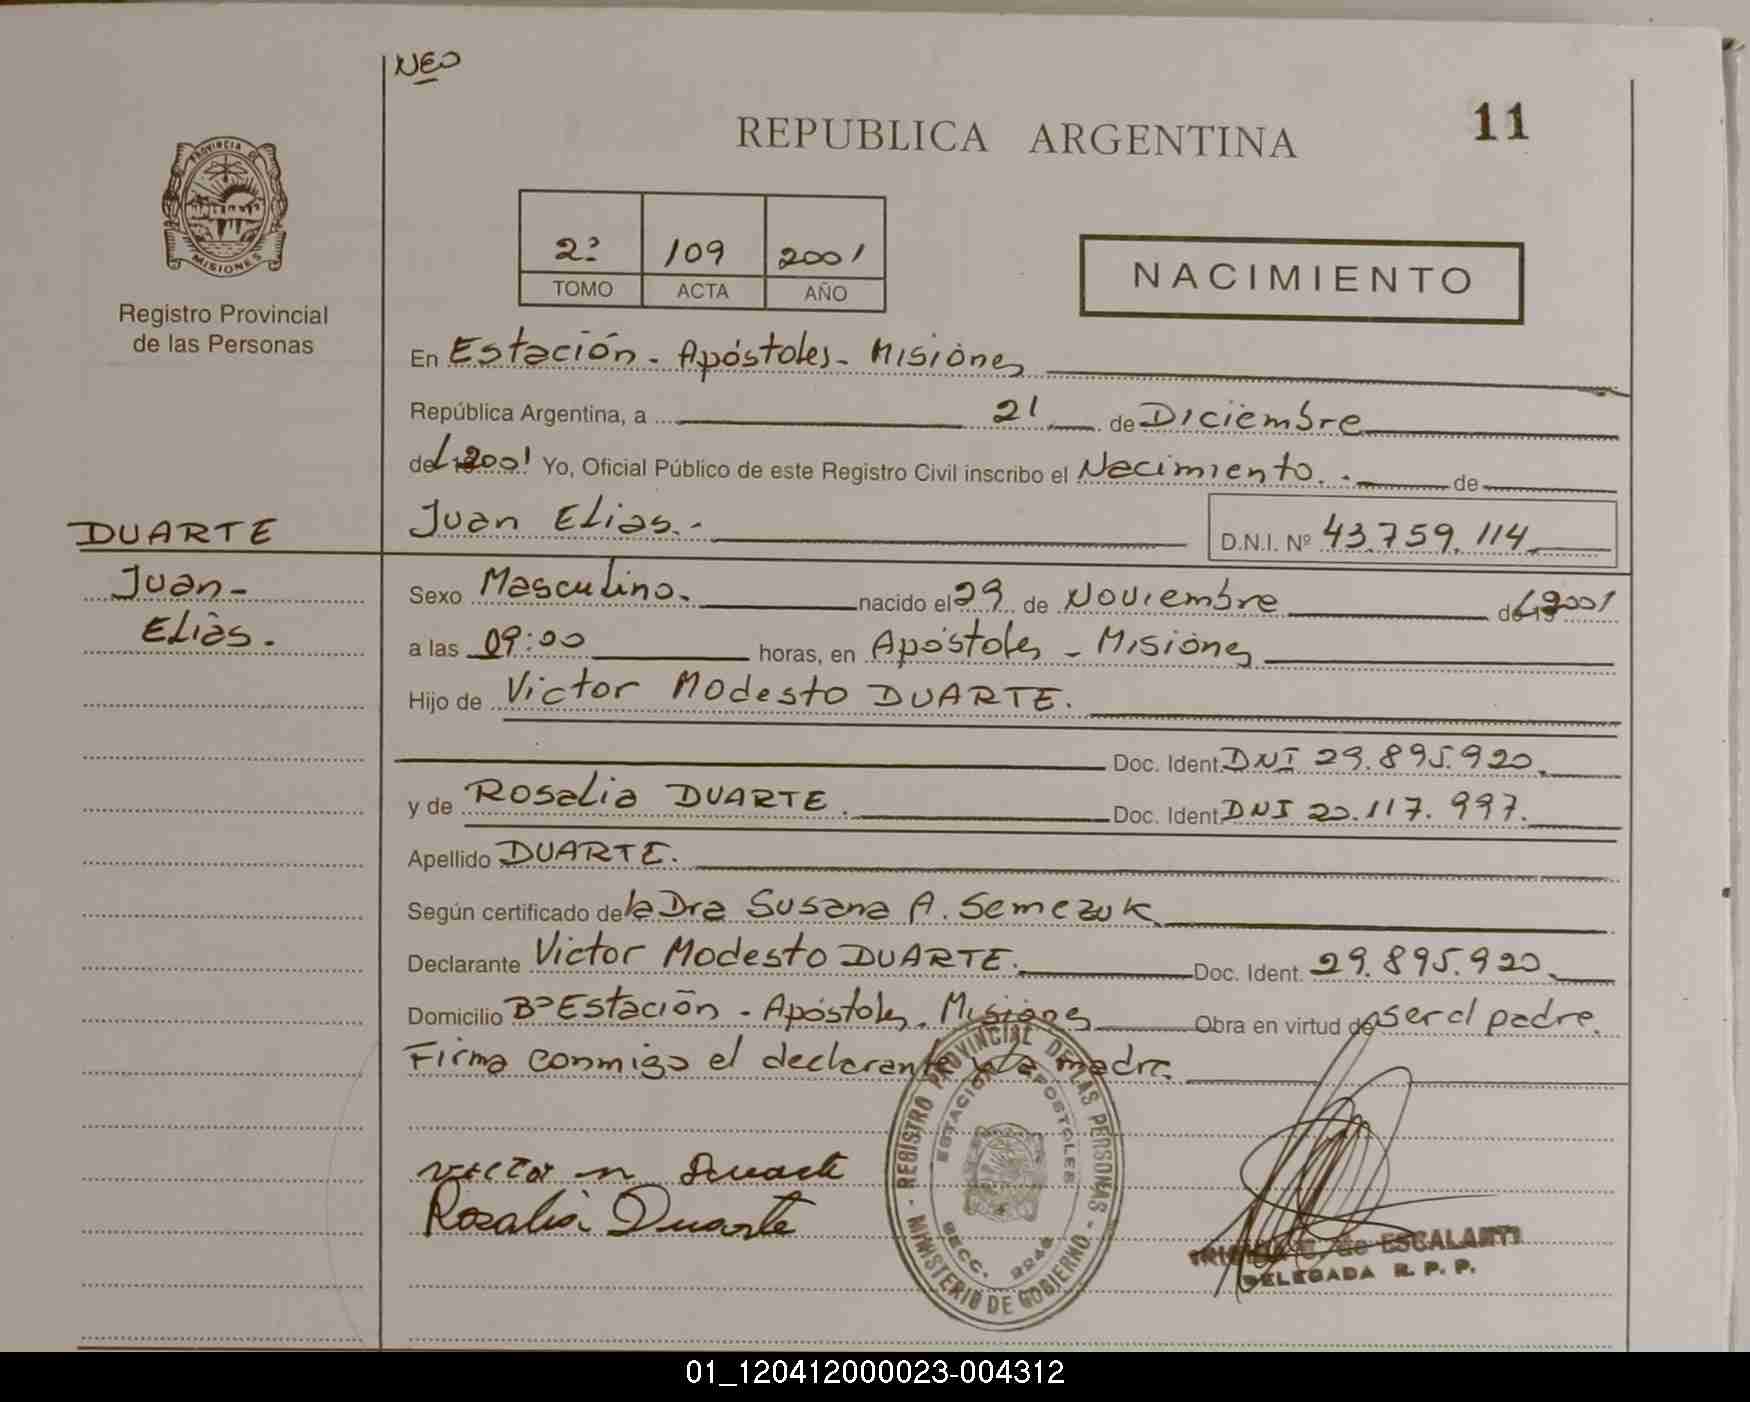 NEO
11
REPUBLICA ARGENTINA
PROVINCIA DE
MISIONES
Registro Provincial
de las Personas
2º 109 2001
TOMO ACTA AÑO
NACIMIENTO
En Estación - Apóstoles - Misiones
República Argentina, a 21 de Diciembre
de 2001 Yo, Oficial Público de este Registro Civil inscribo el Nacimiento. de
Juan Elias.- D.N.I. Nº 43.759.114
DUARTE
Juan-
Eliàs.
Sexo Masculino. nacido el 29 de Noviembre de 2001
a las 09:00 horas, en Apóstoles - Misiones
Hijo de Victor Modesto DUARTE.
Doc. Ident. DNI 29.895.920.
y de Rosalia DUARTE. Doc. Ident. DNI 20.117.997.
Apellido DUARTE.
Según certificado de la Dra Susana A. Semezuk
Declarante Victor Modesto DUARTE. Doc. Ident. 29.895.920.
Domicilio Bº Estación - Apóstoles. Misiones Obra en virtud de ser el padre.
Firma conmigo el declarante y la madre.
REGISTRO PROVINCIAL DE LAS PERSONAS - MINISTERIO DE GOBIERNO -
ESTACION APOSTOLES
SECC.
victor m Duarte
Rosalia Duarte
de ESCALANTE
DELEGADA R. P. P.
01_120412000023-004312